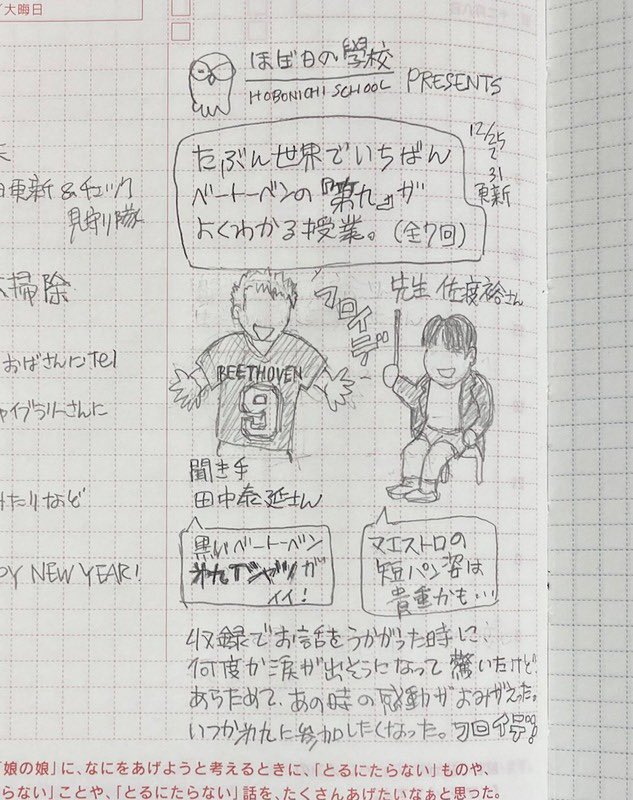 大晦日
ほぼ日の學校
HOBONICHI SCHOOL PRESENTS
12/25
〜
31
更新
たぶん世界でいちばん
ベートーベンの『第九』が
よくわかる授業。(全7回)
日更新&チェック
見守り隊
掃除
おばさんにTel
ャイブラリーさんに
みたりなど
PY NEW YEAR!
先生 佐渡裕さん
フロイデ
BEETHOVEN
9
聞き手
田中泰延さん
黒いベートーベン
第九Tシャツが
イイ!
マエストロの
短パン姿は
貴重かも…
収録でお話をうかがった時に、
何度か涙が出そうになって驚いたけど
あらためて、あの時の感動がよみがえった。
いつか第九に参加したくなった。フロイデ
「娘の娘」に、なにをあげようと考えるときに、「とるにたらない」ものや、
らない」ことや、「とるにたらない」話を、たくさんあげたいなぁと思った。